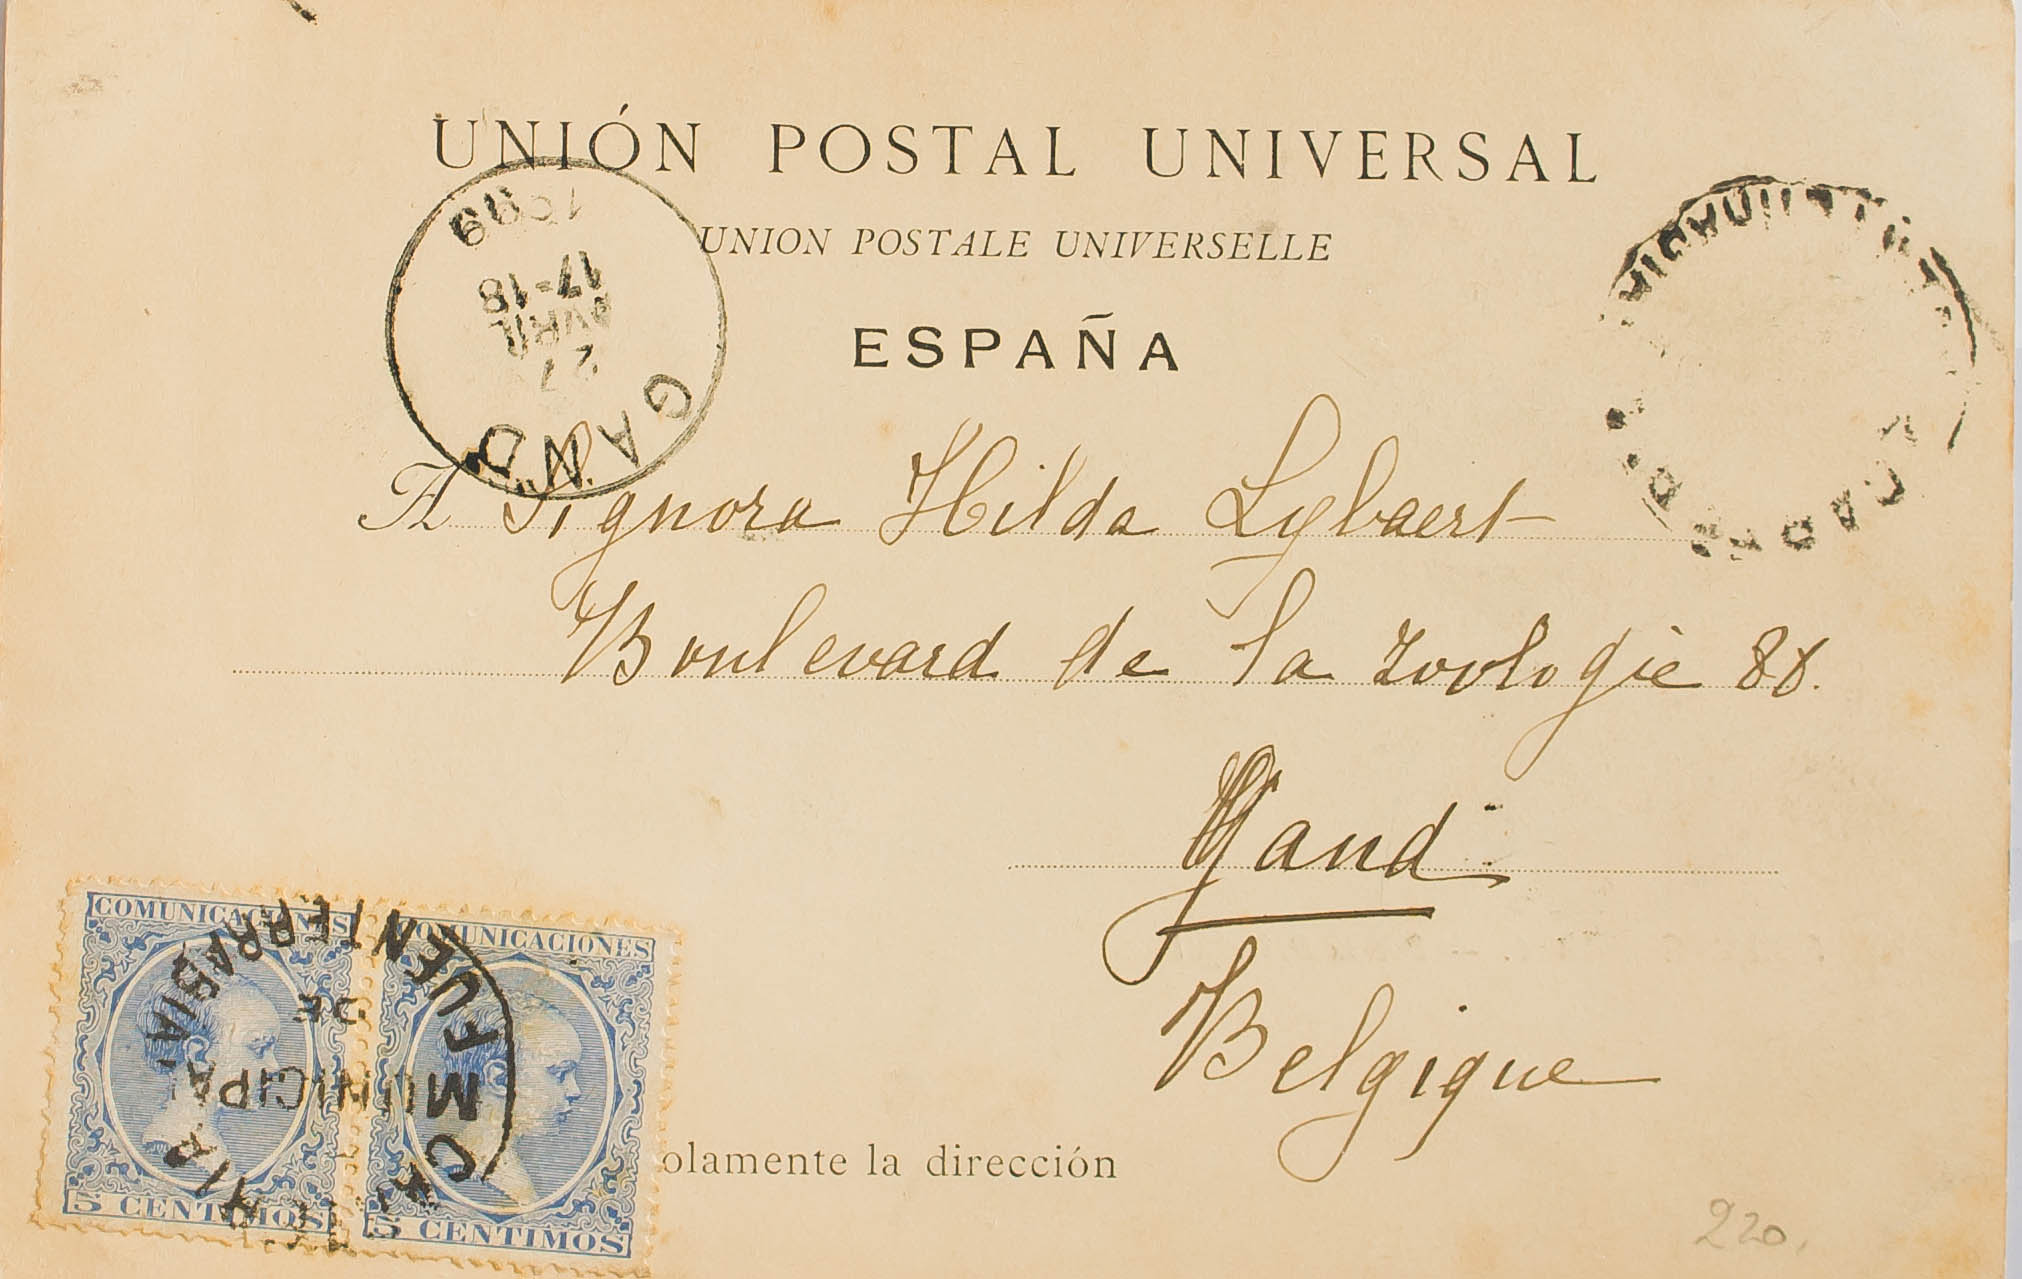 UNIÓN POSTAL UNIVERSAL
UNION POSTALE UNIVERSELLE
ESPAÑA
GAND
27
AVRIL
17-18
1899
A Signora Hilda Lybaert
Boulevard de la Zoologie 88.
Gand
Belgique
olamente la dirección
COMUNICACIONES
5 CENTIMOS
COMUNICACIONES
5 CENTIMOS
FUENTERRABIA
DE
MUNICIPAL
220.